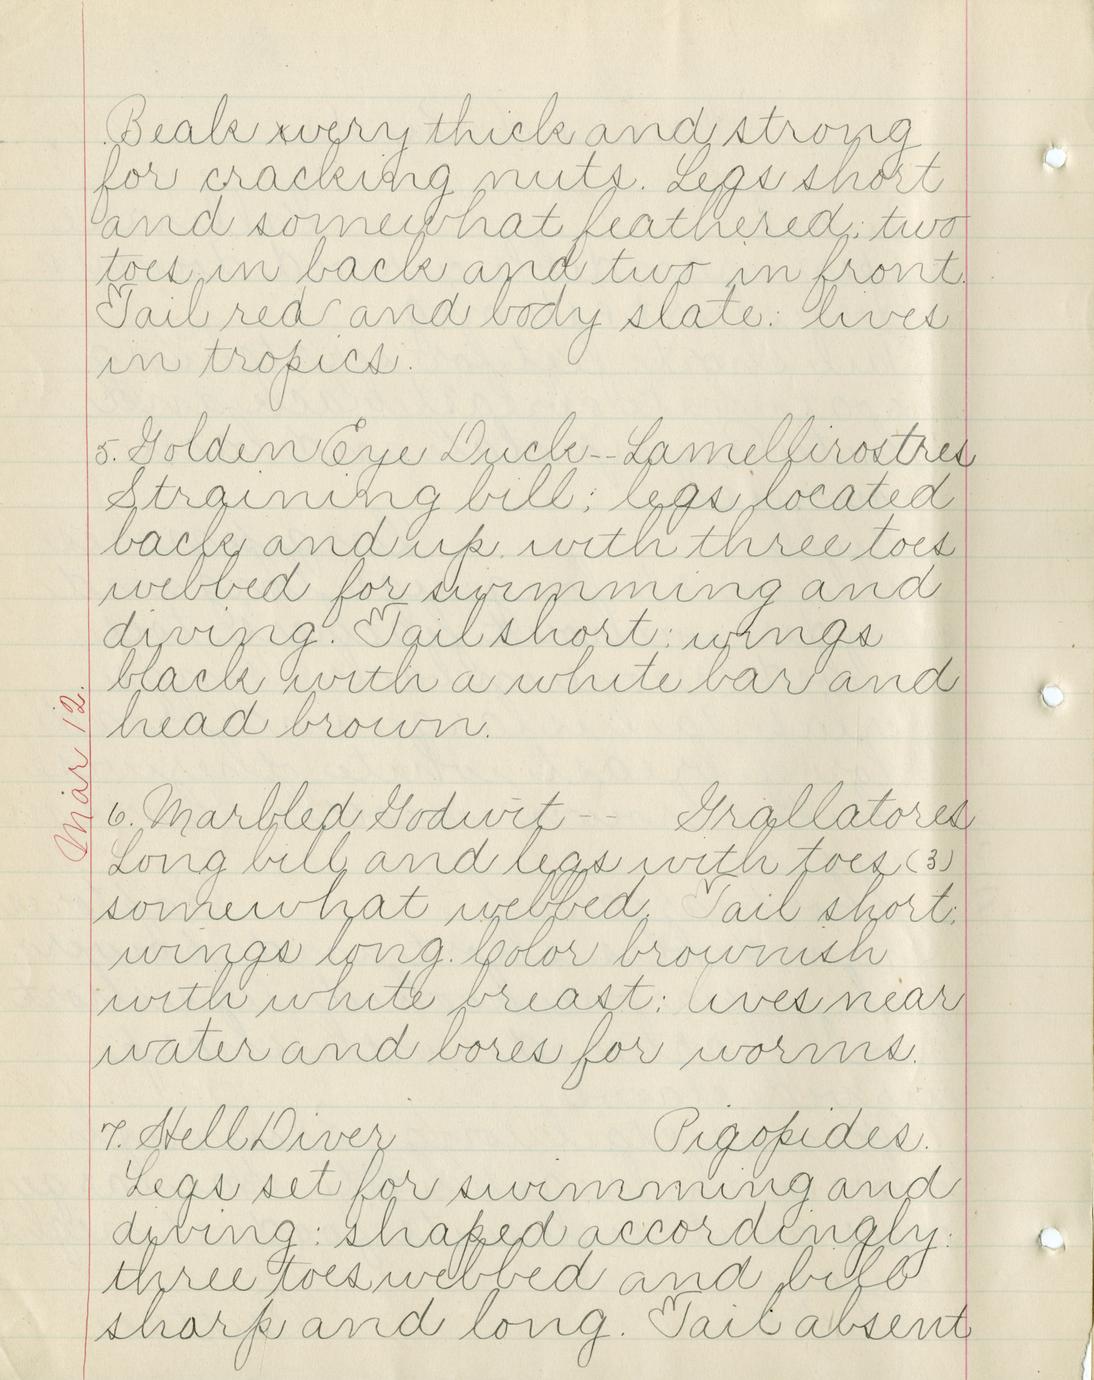 Beak very thick and strong
for cracking nuts. Legs short
and somewhat feathered; two
toes in back and two in front.
Tail red and body slate: lives
in tropics.
5. Golden Eye Duck -- Lamellirostres
Straining bill; legs located
back and up with three toes
webbed for swimming and
diving. Tail short: wings
black with a white bar and
head brown.
Mar 12.
6. Marbled Godwit -- Grallatores
Long bill and legs with toes (3)
somewhat webbed. Tail short;
wings long. Color brownish
with white breast: lives near
water and bores for worms.
7. Hell Diver Pigopides.
Legs set for swimming and
diving: shaped accordingly:
three toes webbed and bill
sharp and long. Tail absent